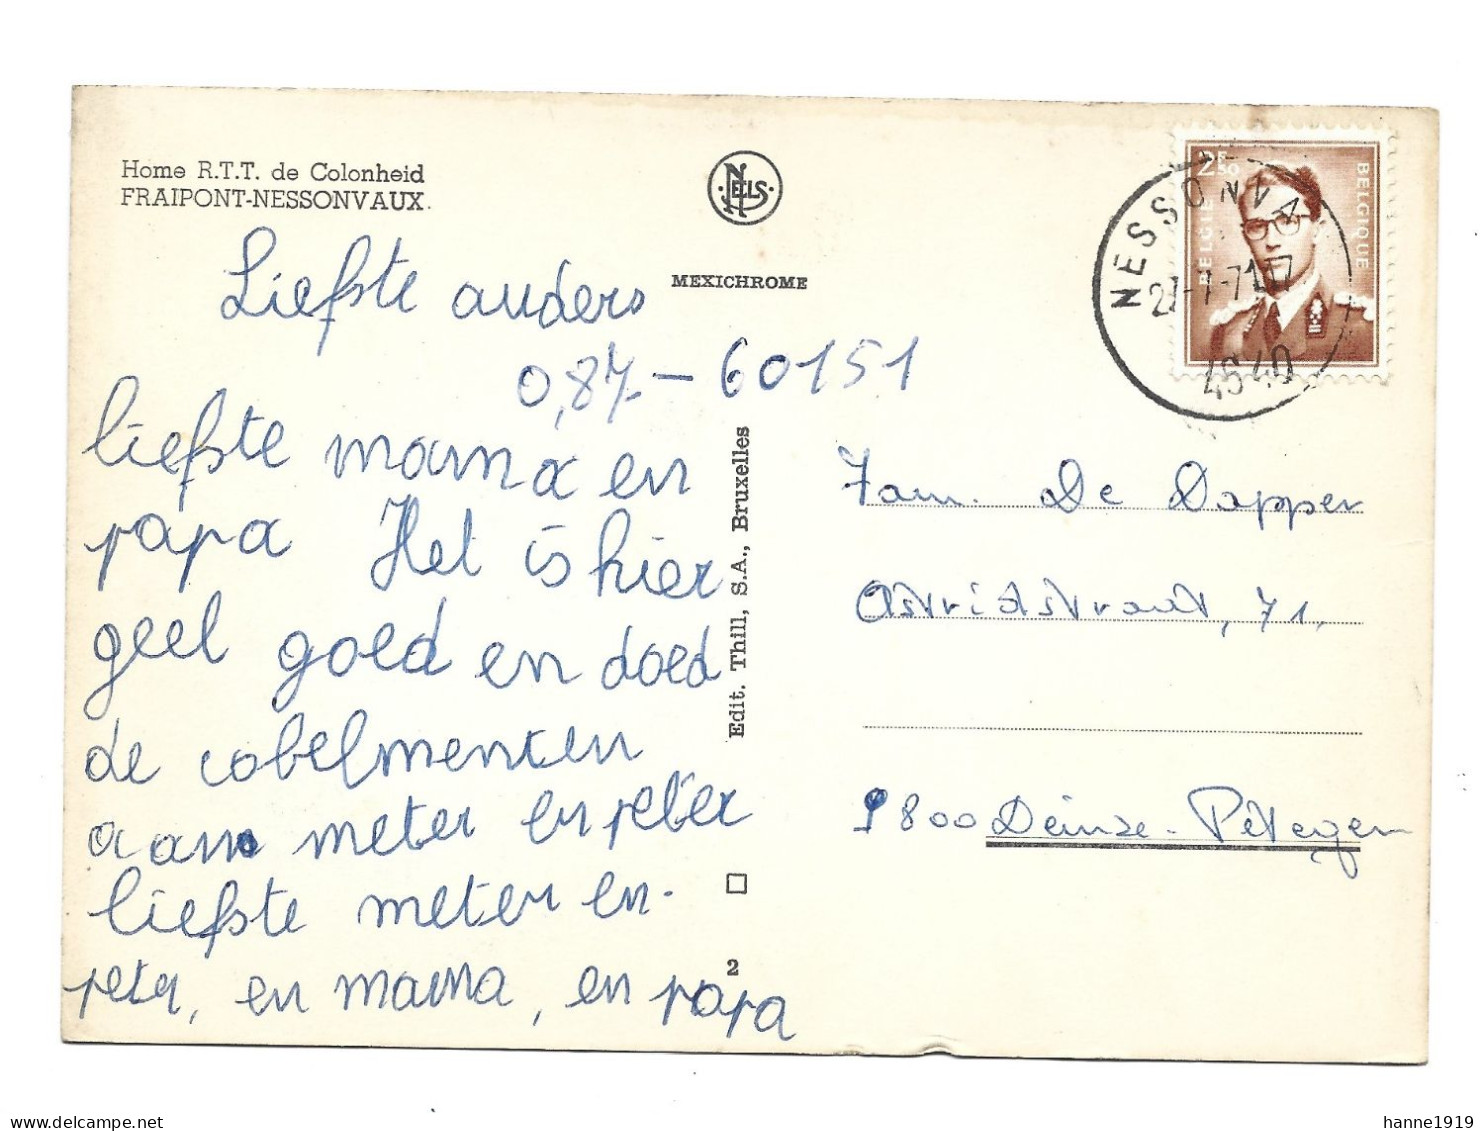 Home R.T.T. de Colonheid
FRAIPONT-NESSONVAUX.
NELS
MEXICHROME
2F50
BELGIE
BELGIQUE
NESSONVA
27-7-71 17
4640
Liefste auders
0,87 - 60151
liefste mama en
papa Het is hier
geel goed en doed
de cobelmenten
aan meter en peter
liefste meter en.
peter, en mama, en papa
Edit. Thill, S.A., Bruxelles
2
Fam. De Dapper
Astridstraat, 71,
9800 Deinze-Petegem
hanne1919